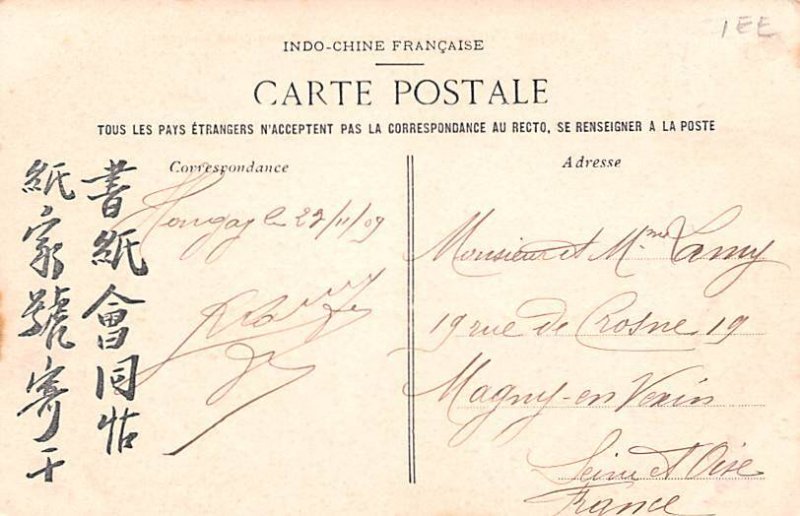 1EE
INDO-CHINE FRANÇAISE
CARTE POSTALE
TOUS LES PAYS ÉTRANGERS N'ACCEPTENT PAS LA CORRESPONDANCE AU RECTO, SE RENSEIGNER A LA POSTE
Correspondance
Adresse
Hongay le 22/11/09
Monsieur et Mme Lamy
19 rue de Crosne 19
Magny-en Vexin
Seine et Oise
France
書紙會同帖
紙家號寄干